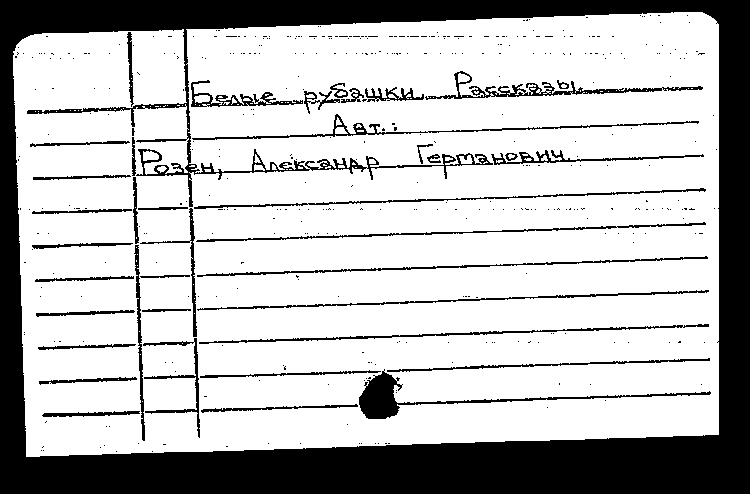 Белые рубашки. Рассказы.
Авт.:
Розен, Александр Германович.